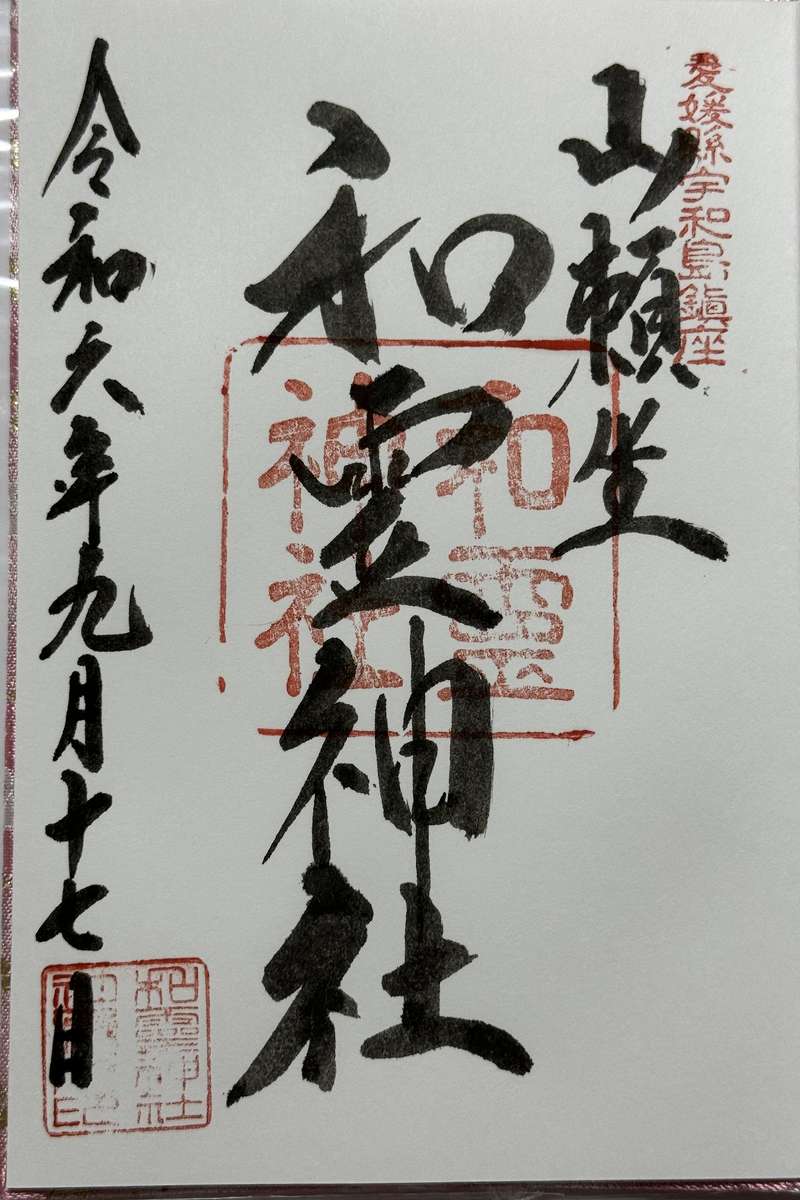 愛媛縣宇和島鎮座
山頼坐
和霊神社
和霊
神社
令和六年九月十七日
和霊神社